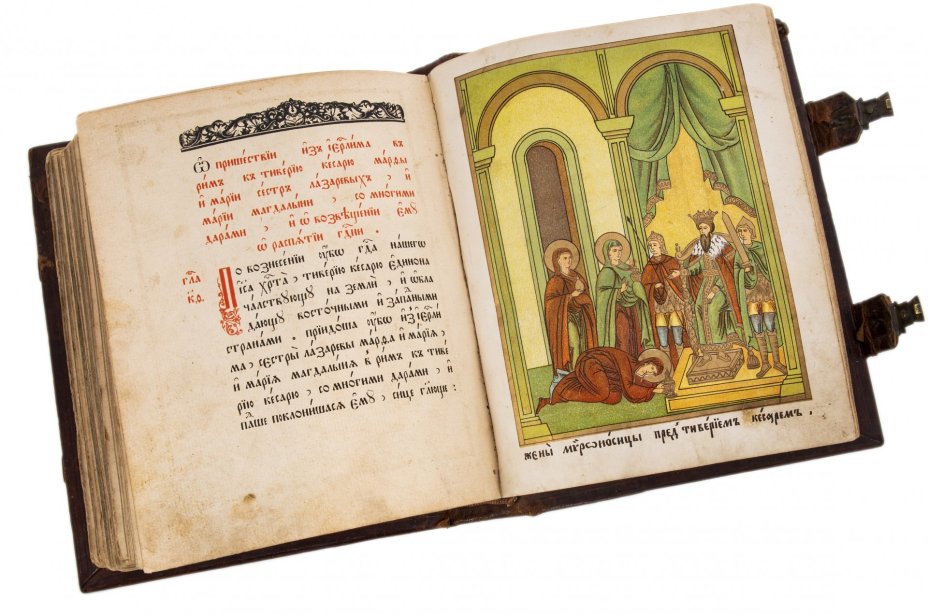 Ѽ пришествїи и҆з̾ і҆ерⷭ҇лима въ
римъ къ тиверїю кесарю марѳы
и҆ марїи сестръ лазаревыхъ , и҆
марїи магдалыни , со многими
дарами , и҆ ѡ҆ возвѣщенїи є҆мꙋ
ѡ҆ распѧтїи гдⷭ҇ни .
гла
к҃ѳ.
По вознесенїи ᲂу҆бѡ гдⷭ҇а нашегѡ
і҆и҃са хрⷭ҇та , тиверїю кесарю є҆динона
чалствꙋющꙋ на землѝ , и҆ ѡ҆бла
дающꙋ восточными и҆ западными
странами . прїидоша ᲂу҆бѡ и҆з̾ і҆ерⷭ҇ли
ма , сестры лазаревы марѳа и҆ марїа ,
и҆ марїѧ магдалынѧ в̾ римъ къ тиве
рїю кесарю , со многими дарами , и҆
падше поклонишасѧ є҆мꙋ , сице гл҃юще :
жены̀ мѷрѡносицы пред̾ тиверїемъ кесаремъ .